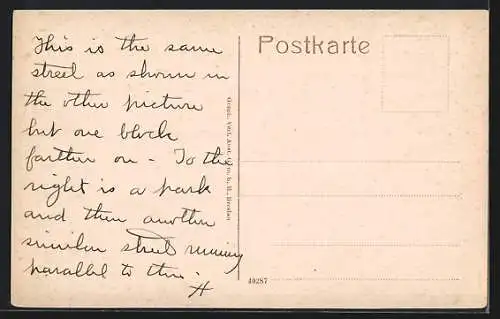 This is the same
street as shown in
the other picture
but one block
farther on - To the
right is a park
and then another
similar street running
parallel to this.
H
Postkarte
Graph. Verl.-Anst. G. m. b. H., Breslau
40287